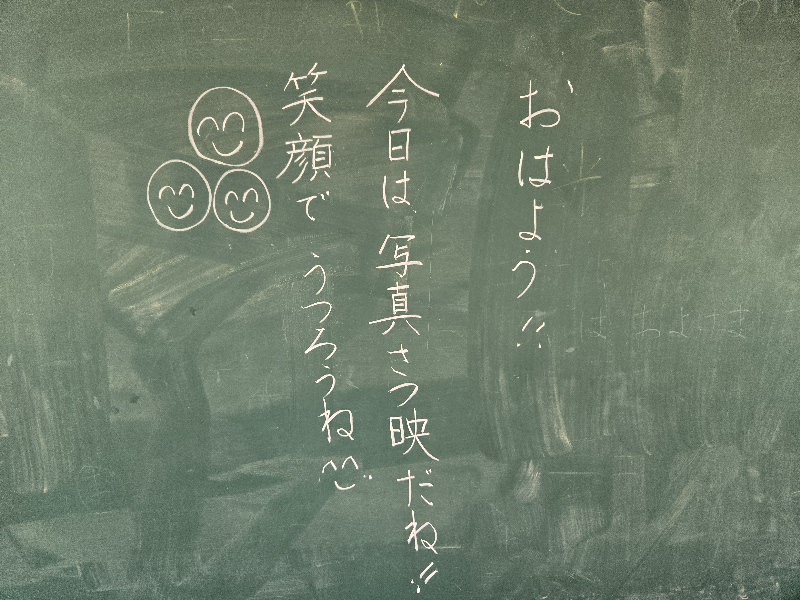 おはよう!!
今日は写真さつ映だね!!
笑顔でうつろうね